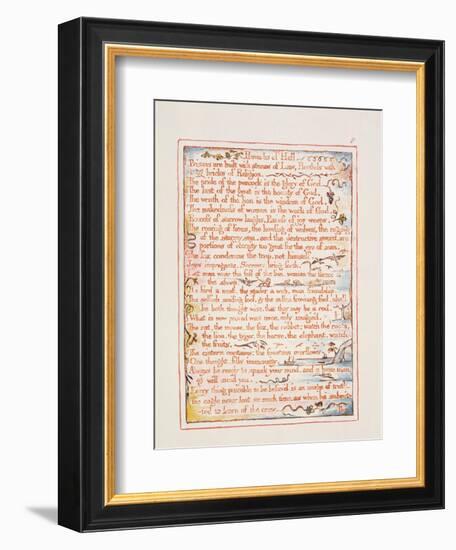 Proverbs of Hell
Prisons are built with stones of Law, Brothels with
bricks of Religion.
The pride of the peacock is the glory of God.
The lust of the goat is the bounty of God.
The wrath of the lion is the wisdom of God.
The nakedness of woman is the work of God.
Excess of sorrow laughs. Excess of joy weeps.
The roaring of lions, the howling of wolves, the raging
of the stormy sea, and the destructive sword, are
portions of eternity too great for the eye of man.
The fox condemns the trap, not himself.
Joys impregnate. Sorrows bring forth.
Let man wear the fell of the lion, woman the fleece of
the sheep.
The bird a nest, the spider a web, man friendship.
The selfish smiling fool, & the sullen frowning fool, shall
be both thought wise, that they may be a rod.
What is now proved was once, only imagin'd.
The rat, the mouse, the fox, the rabbet; watch the roots,
the lion, the tyger, the horse, the elephant, watch
the fruits.
The cistern contains; the fountain overflows
One thought, fills immensity.
Always be ready to speak your mind, and a base man
will avoid you.
Every thing possible to be believ'd is an image of truth.
The eagle never lost so much time, as when he submit-
-ted to learn of the crow.
The